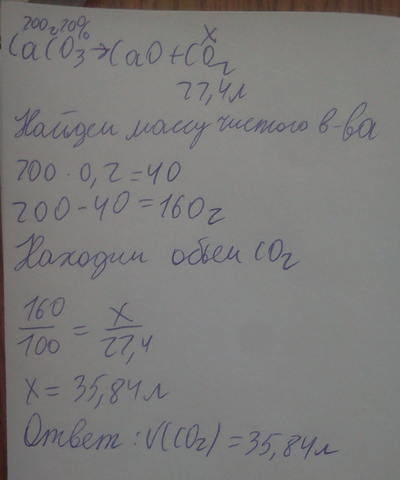 200г 20% X
CaCO₃ → CaO + CO₂
22,4л
Найдем массу чистого в-ва
200 · 0,2 = 40
200 - 40 = 160г
Находим объем CO₂
160/100 = X/22,4
X = 35,84л
Ответ: V(CO₂) = 35,84л